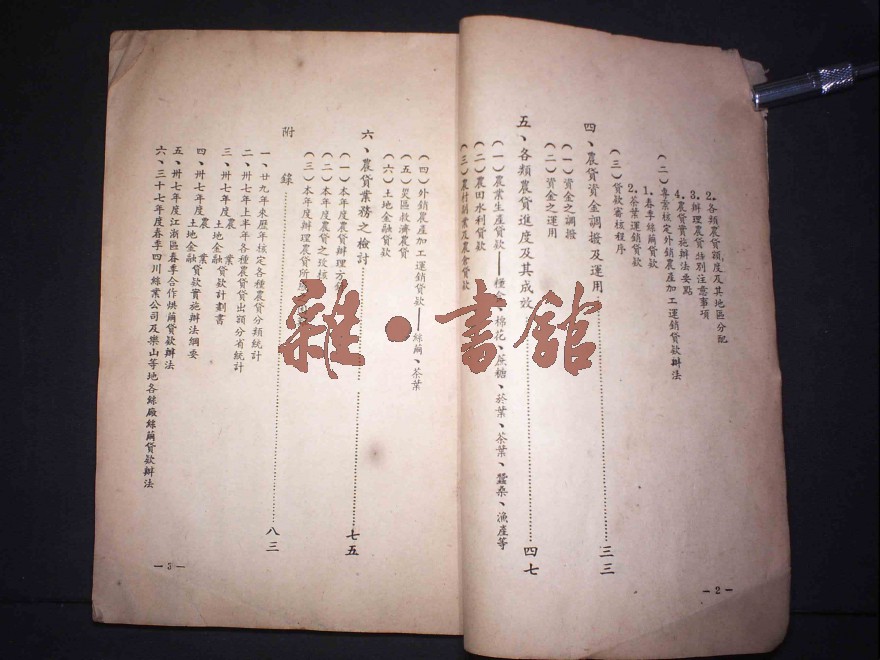 2.各類農貸額度及其地區分配
3.辦理農貸特別注意事項
4.農貸實施辦法要點
(二)專案核定外銷農產加工運銷貸款辦法
1.春季絲繭貸款
2.茶葉運銷貸款
(三)貸款審核程序
四、農貸資金調撥及運用……三三
(一)資金之調撥
(二)資金之運用
五、各類農貸進度及其成效……四七
(一)農業生產貸款——糧食、棉花、蔗糖、菸葉、茶葉、蠶桑、漁產等
(二)農田水利貸款
(三)農村副業及農倉貸款
—2—
(四)外銷農產加工運銷貸款——絲繭、茶葉
(五)災區救濟農貸
(六)土地金融貸款
六、農貸業務之檢討……七五
(一)本年度農貸辦理方
(二)本年度農貸之攷核
(三)本年度辦理農貸所
附 錄……八三
一、廿九年來歷年核定各種農貸分類統計
二、卅七年上半年各種農貸貸出額分省統計
三、卅七年度農業土地金融貸款計劃書
四、卅七年度農業土地金融貸款實施辦法綱要
五、卅七年度江浙區春季合作烘繭貸款辦法
六、三十七年度春季四川絲業公司及樂山等地各絲廠絲繭貸款辦法
—3—
雜·書館